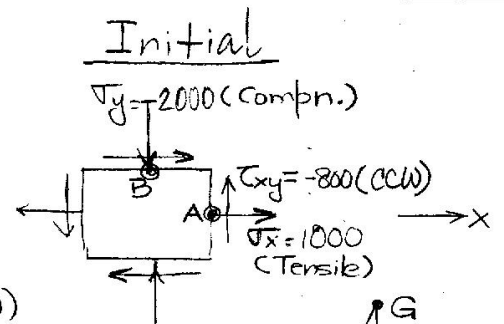 Initial
σy=-2000(Compn.)
B
τxy=-800(CCW)
A
σx=1000
X
(Tensile)
)
G